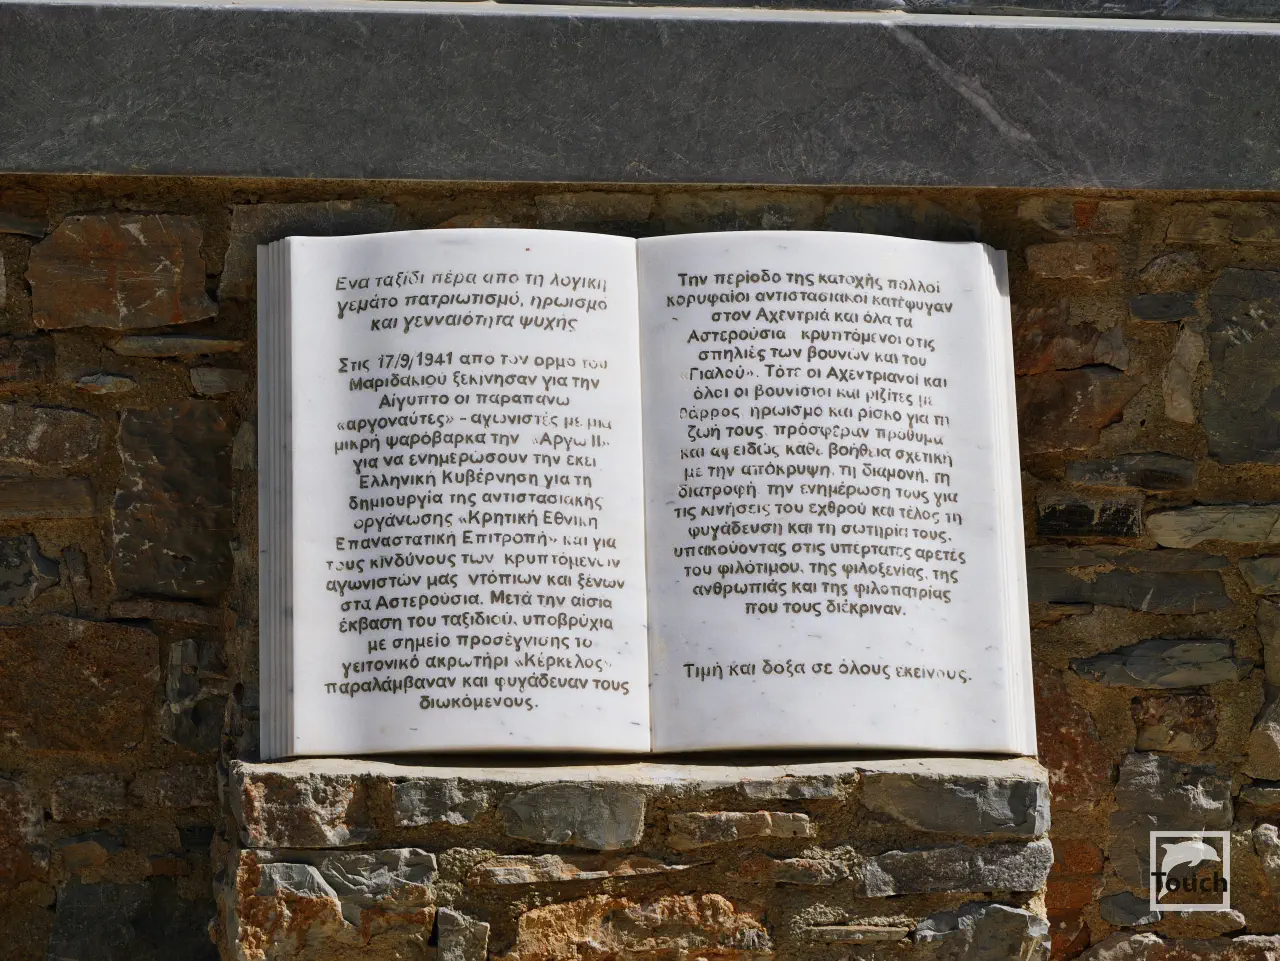 Ενα ταξίδι πέρα απο τη λογική
γεμάτο πατριωτισμό, ηρωισμο
και γενναιότητα ψυχής
Στις 17/9/1941 απο τον ορμο του
Μαριδακιού ξεκίνησαν για την
Αίγυπτο οι παραπάνω
«αργοναύτες» - αγωνιστές με μια
μικρή ψαρόβαρκα την «Αργω ΙΙ»
για να ενημερώσουν την εκεί
Ελληνική Κυβέρνηση για τη
δημιουργία της αντιστασιακής
οργάνωσης «Κρητική Εθνική
Επαναστατική Επιτροπή» και για
τους κινδύνους των κρυπτόμενων
αγωνιστών μας ντόπιων και ξένων
στα Αστερούσια. Μετά την αίσια
έκβαση του ταξιδιού, υποβρύχια
με σημείο προσέγγισης το
γειτονικό ακρωτήρι «Κέρκελος»
παραλάμβαναν και φυγάδευαν τους
διωκόμενους.
Την περίοδο της κατοχής πολλοί
κορυφαίοι αντιστασιακοί κατέφυγαν
στον Αχεντριά και όλα τα
Αστερούσια κρυπτόμενοι στις
σπηλιές των βουνών και του
«Γιαλού». Τότε οι Αχεντριανοί και
όλοι οι βουνίσιοι και ριζίτες με
θάρρος, ηρωισμο και ρίσκο για τη
ζωή τους, πρόσφεραν πρόθυμα
και αφειδώς κάθε βοήθεια σχετική
με την απόκρυψη, τη διαμονή, τη
διατροφή, την ενημέρωση τους για
τις κινήσεις του εχθρού και τέλος τη
φυγάδευση και τη σωτηρία τους,
υπακούοντας στις υπέρτατες αρετές
του φιλότιμου, της φιλοξενίας, της
ανθρωπιάς και της φιλοπατρίας
που τους διέκριναν.
Τιμή και δοξα σε όλους εκείνους.
Touch